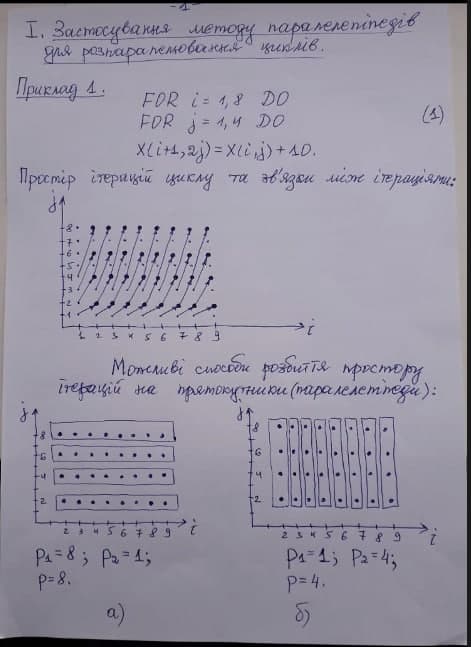 -1-
I. Застосування методу паралелепіпедів
для розпаралелювання циклів.
Приклад 1.
FOR i = 1,8 DO
FOR j = 1,4 DO
(1)
X(i+1,2j)=X(i,j)+10.
Простір ітерацій циклу та зв'язок між ітераціями:
j
8
7
6
5
4
3
2
1
1 2 3 4 5 6 7 8 9 i
Можливі способи розбиття простору
ітерацій на прямокутники(паралелепіпеди):
j
8
6
4
2
2 3 4 5 6 7 8 9 i
P1=8; P2=1;
P=8.
а)
j
8
6
4
2
2 3 4 5 6 7 8 9 i
P1=1; P2=4;
P=4.
б)